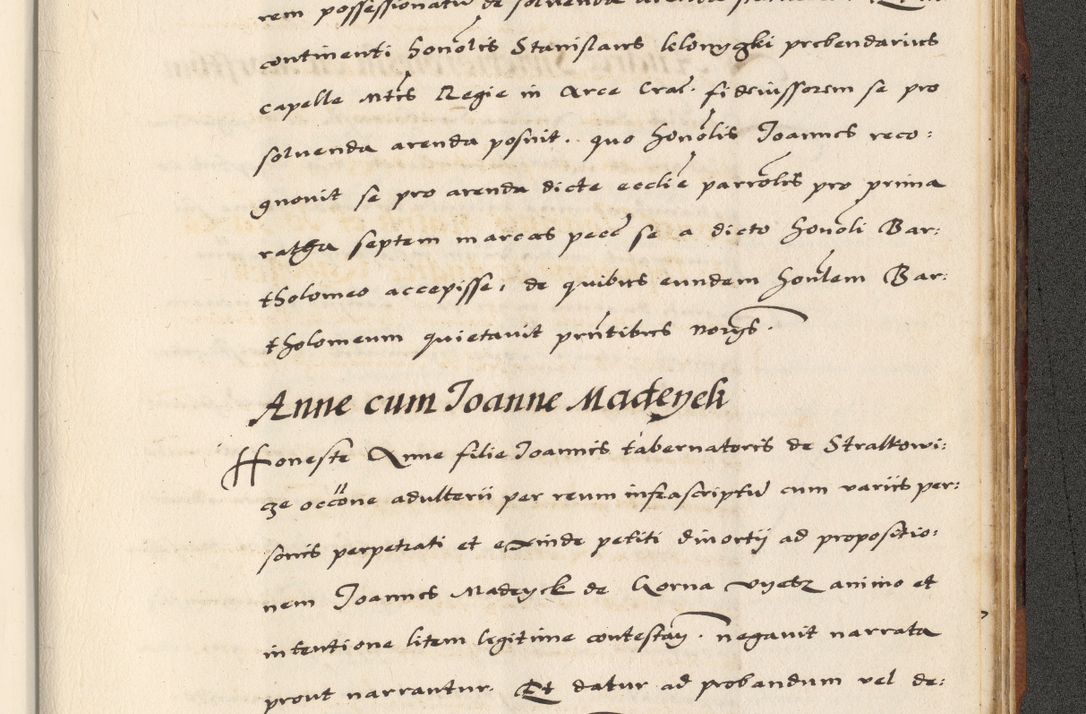 rem possessionatum de solvenda arenda
continenti honolis Stanislaus lelowyski prebendarius
capelle Mtis Regie in Arce Crac. fideiussorem se pro
solvenda arenda posuit. quo honolis Joannes reco:
gnovit se pro arenda dicte ecclie parrolis pro prima
ratha septem marcas pecc se a dicto honoli Bar:
tholomeo accepisse, de quibus eundem honlem Bar:
tholomeum quietavit prntibus noryς.
Anne cum Joanne Madeyek
Honeste Anne filie Joannis tabernatoris de Stralkowi:
ze occone adulterii per reum infrascriptum cum variis per:
sonis perpetrati et exinde petiti divortii ad propositio:
nem Joannes Madeyck de Gorna vyetz animo et
intentione litem legitime contestaη. negavit narrata
prout narrantur. Et datur ad probandum vel de: